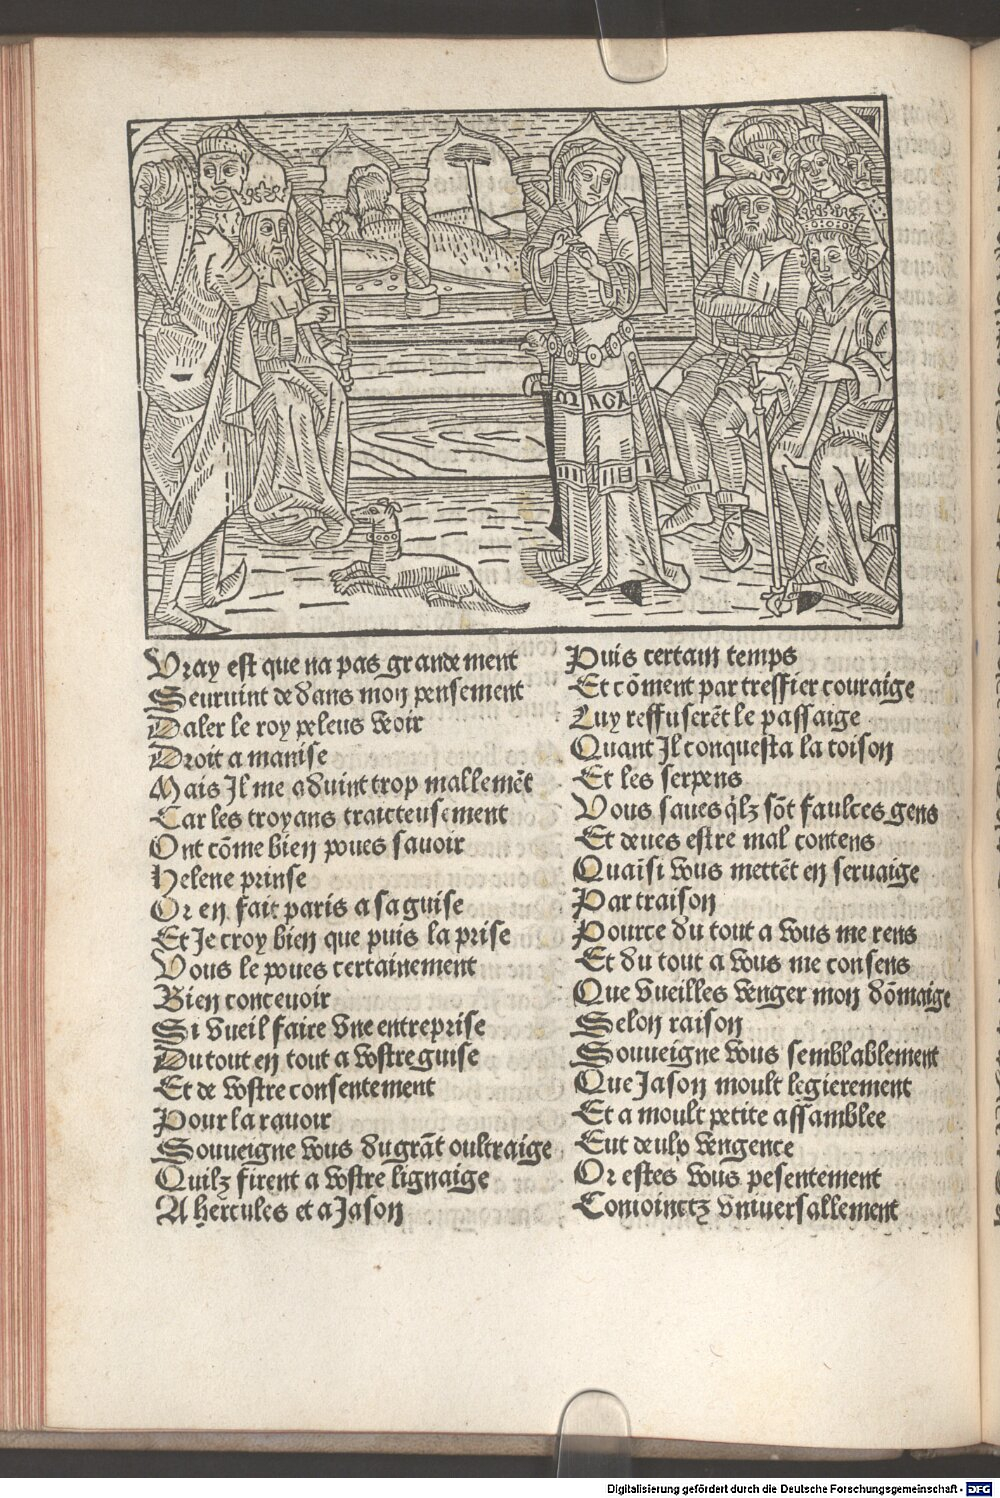 MAGA
Vray est que na pas grandement
Seuruint de dans mon pensement
Daler le roy peleus veoir
Droit a manise
Mais Il me aduint trop mallemēt
Car les troyans traicteusement
Ont cōme bien poues sauoir
Helene prinse
Or en fait paris a sa guise
Et Je croy bien que puis la prise
Vous le poues certainement
Bien conceuoir
Si vueil faire vne entreprise
Du tout en tout a vostre guise
Et de vostre consentement
Pour la rauoir
Souueigne vous du grāt oultraige
Quilz firent a vostre lignaige
A hercules et a Jason
Puis certain temps
Et cōment par tressier couraige
Luy reffuserēt le passaige
Quant Il conquesta la toison
Et les serpens
Vous saues q̄lz sōt faulces gens
Et deues estre mal contens
Quaīsi vous mettēt en seruaige
Par traison
Pource du tout a vous me rens
Et du tout a vous me consens
Que vueilles venger mon dōmaige
Selon raison
Souueigne vous semblablement
Que Jason moult legierement
Et a moult petite assamblee
Eut deulx vengence
Or estes vous pesentement
Conioinctz vniuersallement
Digitalisierung gefördert durch die Deutsche Forschungsgemeinschaft - DFG